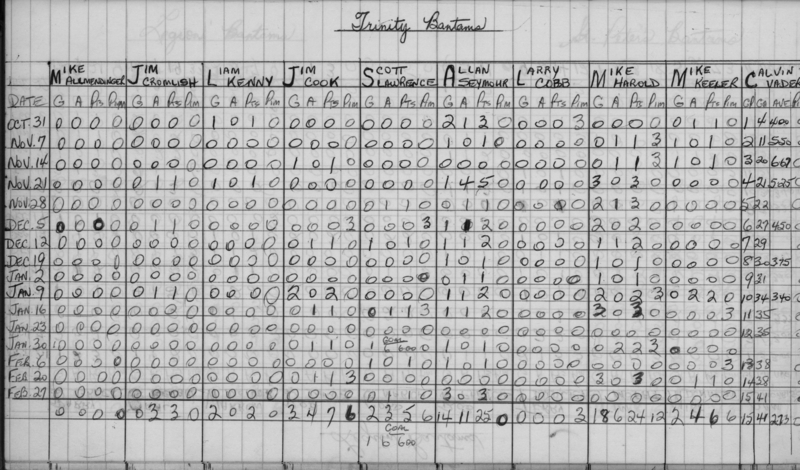 Trinity Bantams
MIKE ALLMENDINGER JIM CROMLISH LIAM KENNY JIM COOK SCOTT LAWRENCE ALLAN SEYMOUR LARRY COBB MIKE HAROLD MIKE KEELER CALVIN VADER
DATE G A Pts Pim G A Pts Pim G A Pts Pim G A Pts Pim G A Pts Pim G A Pts Pim G A Pts Pim G A Pts Pim G A Pts GP GA AVE
OCT. 31 0 0 0 0 0 0 0 0 1 0 1 0 0 0 0 0 0 0 0 0 2 1 3 0 0 0 0 3 0 0 0 0 0 1 1 0 1 4 400
NOV. 7 0 0 0 0 0 0 0 0 0 0 0 0 0 0 0 0 0 0 0 0 1 0 1 0 0 0 0 0 0 1 1 3 1 0 1 0 2 11 550
NOV. 14 0 0 0 0 0 0 0 0 0 0 0 0 1 0 1 0 0 0 0 0 0 0 0 0 0 0 0 0 0 1 1 3 1 0 1 0 3 20 667
NOV. 21 0 0 0 0 0 1 1 0 1 0 1 0 0 0 0 0 0 0 0 0 1 4 5 0 0 0 0 0 3 0 3 0 0 0 0 0 4 21 525
NOV. 28 0 0 0 0 0 0 0 0 0 0 0 0 0 0 0 0 0 1 1 0 0 1 1 0 0 0 0 0 2 1 3 0 0 0 0 0 5 22
DEC. 5 0 0 0 0 0 1 1 0 0 0 0 0 0 0 0 3 0 0 0 3 1 1 2 0 0 0 0 0 2 0 2 0 0 0 0 0 6 27 450
DEC. 12 0 0 0 0 0 0 0 0 0 0 0 0 0 1 1 0 1 0 1 0 1 1 2 0 0 0 0 0 1 1 2 0 0 0 0 0 7 29
DEC. 19 0 0 0 0 0 0 0 0 0 0 0 0 0 0 0 0 0 0 0 0 1 0 1 0 0 0 0 0 1 0 1 0 0 0 0 0 8 30 375
JAN. 2 0 0 0 0 0 0 0 0 0 0 0 0 0 0 0 0 0 0 0 0 0 1 1 0 0 0 0 0 1 0 1 0 0 0 0 0 9 31
JAN. 9 0 0 0 0 0 1 1 0 0 0 0 0 2 0 2 0 0 0 0 0 1 1 2 0 0 0 0 0 2 0 2 3 0 2 2 0 10 34 340
JAN. 16 0 0 0 0 0 0 0 0 0 0 0 0 0 1 1 0 0 1 1 3 1 1 2 0 0 0 0 0 3 0 3 0 0 0 0 3 11 35
JAN. 23 0 0 0 0 0 0 0 0 0 0 0 0 0 0 0 0 0 0 0 0 0 0 0 0 0 0 0 0 0 0 0 0 0 0 0 0 12 36
JAN. 30 0 0 0 0 0 0 0 0 0 0 0 0 0 1 1 0 GOAL 1 6 600 1 0 1 0 0 0 0 0 0 2 2 3 0 0 0 0
FEB. 6 0 0 0 0 0 0 0 0 0 0 0 0 0 0 0 0 1 0 1 0 1 0 1 0 0 0 0 0 0 0 0 0 0 0 0 3 13 38
FEB. 20 0 0 0 0 0 0 0 0 0 0 0 0 0 1 1 3 0 0 0 0 0 0 0 0 0 0 0 0 3 0 3 0 0 1 1 0 14 38
FEB. 27 0 0 0 0 0 0 0 0 0 0 0 0 0 0 0 0 0 1 1 0 3 0 3 0 0 0 0 0 0 0 0 0 0 0 0 0 15 41
0 0 0 0 0 3 3 0 2 0 2 0 3 4 7 6 2 3 5 6 14 11 25 0 0 0 0 3 18 6 24 12 2 4 6 6 15 41 273
GOAL
1 6 600